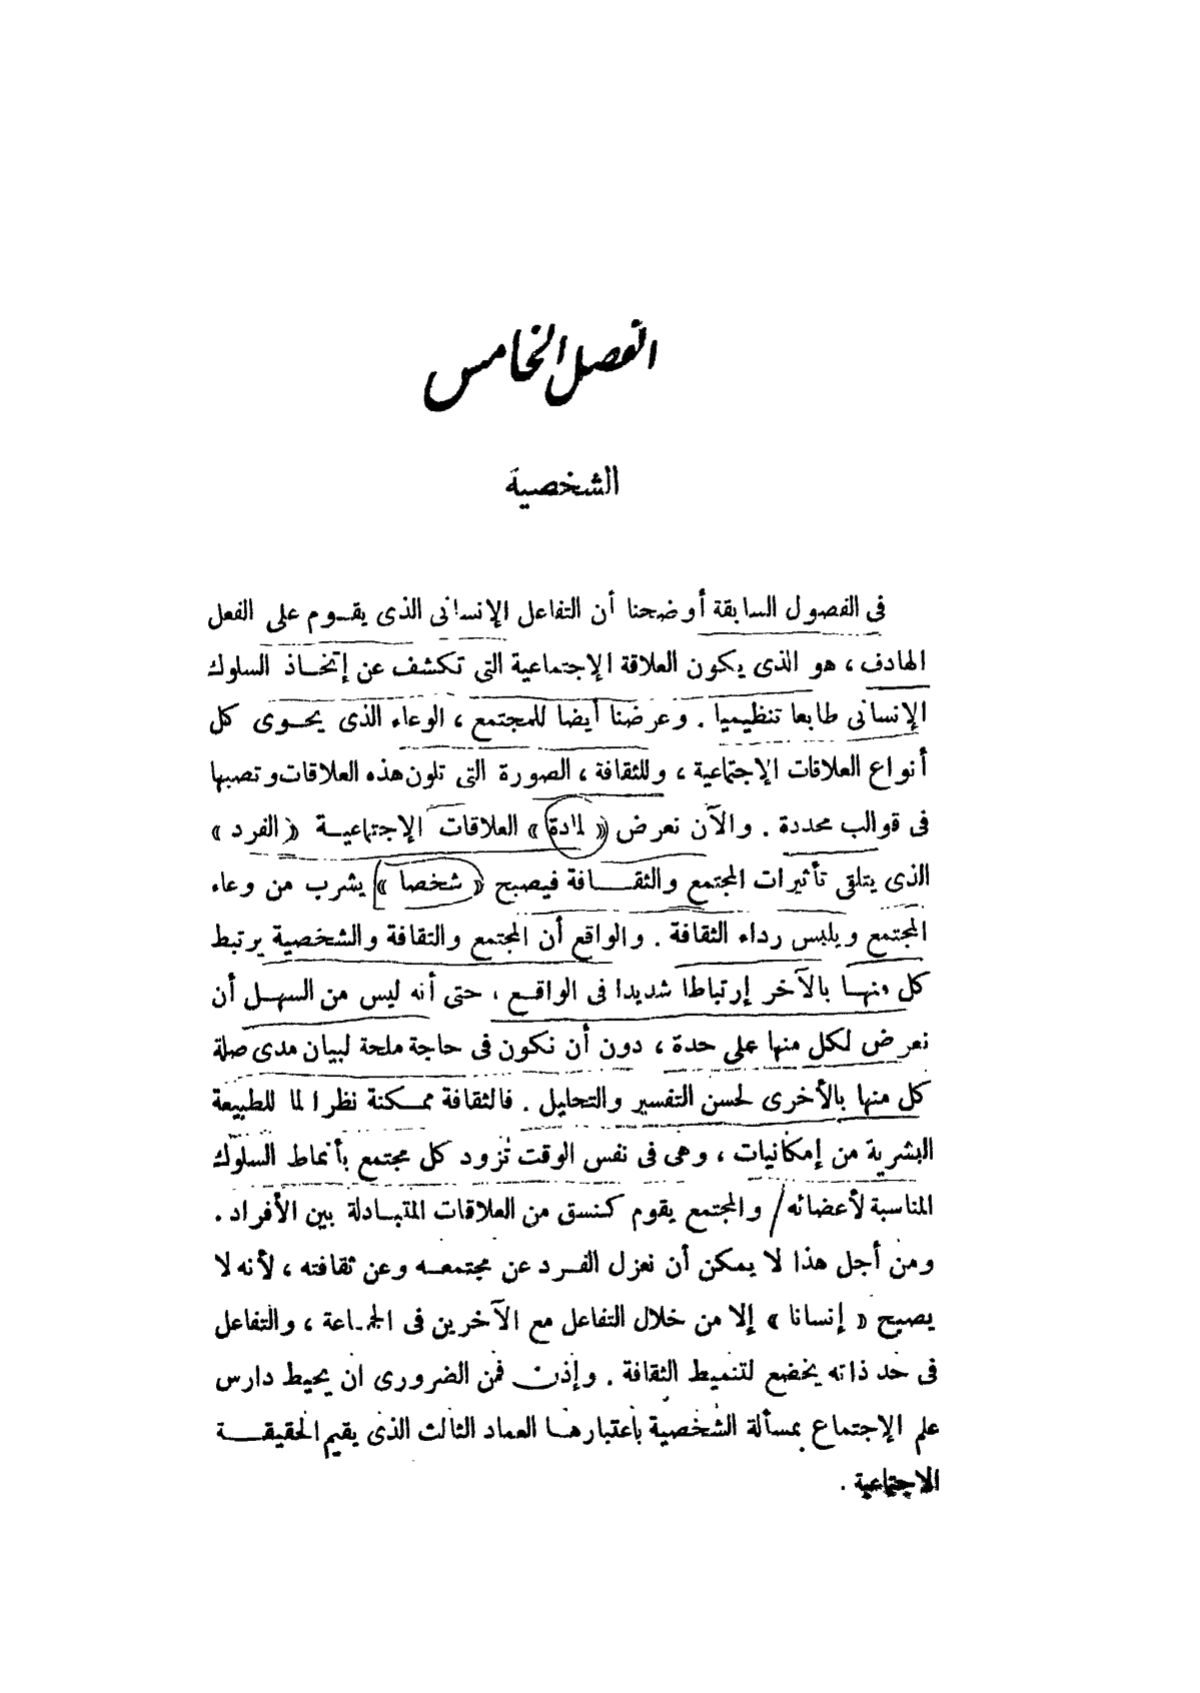 الفصل الخامس
الشخصية
فى الفصول السابقة أوضحنا أن التفاعل الإنسانى الذى يقـوم على الفعل
الهادف ، هو الذى يكون العلاقة الإجتماعية التى تكشف عن إتخـاذ السلوك
الإنسانى طابعا تنظيميا . وعرضنا أيضا للمجتمع ، الوعاء الذى يحـوى كل
أنواع العلاقات الإجتماعية ، وللثقافة ، الصورة التى تلون هذه العلاقات وتصبها
فى قوالب محددة . والآن نعرض « لمادة » العلاقات الإجتماعيـة « الفرد »
الذى يتلقى تأثيرات المجتمع والثقـــافة فيصبح « شخصا » يشرب من وعاء
المجتمع ويلبس رداء الثقافة . والواقع أن المجتمع والثقافة والشخصية يرتبط
كل منهـا بالآخر إرتباطا شديدا فى الواقـع ، حتى أنه ليس من السهـل أن
نعرض لكل منها على حدة ، دون أن نكون فى حاجة ملحة لبيان مدى صلة
كل منها بالأخرى لحسن التفسير والتحليل . فالثقافة ممـكنة نظرا لما للطبيعة
البشرية من إمكانيات ، وهى فى نفس الوقت تزود كل مجتمع بأنماط السلوك
المناسبة لأعضائه / والمجتمع يقوم كنسق من العلاقات المتبـادلة بين الأفراد .
ومن أجل هذا لا يمكن أن نعزل الفـرد عن مجتمعـه وعن ثقافته ، لأنه لا
يصبح « إنسانا » إلا من خلال التفاعل مع الآخرين فى الجمـاعة ، والتفاعل
فى حد ذاته يخضع لتنميط الثقافة . وإذن فمن الضرورى ان يحيط دارس
علم الإجتماع بمسألة الشخصية بإعتبارهـا العماد الثالث الذى يقيم الحقيقـــة
الاجتماعية .